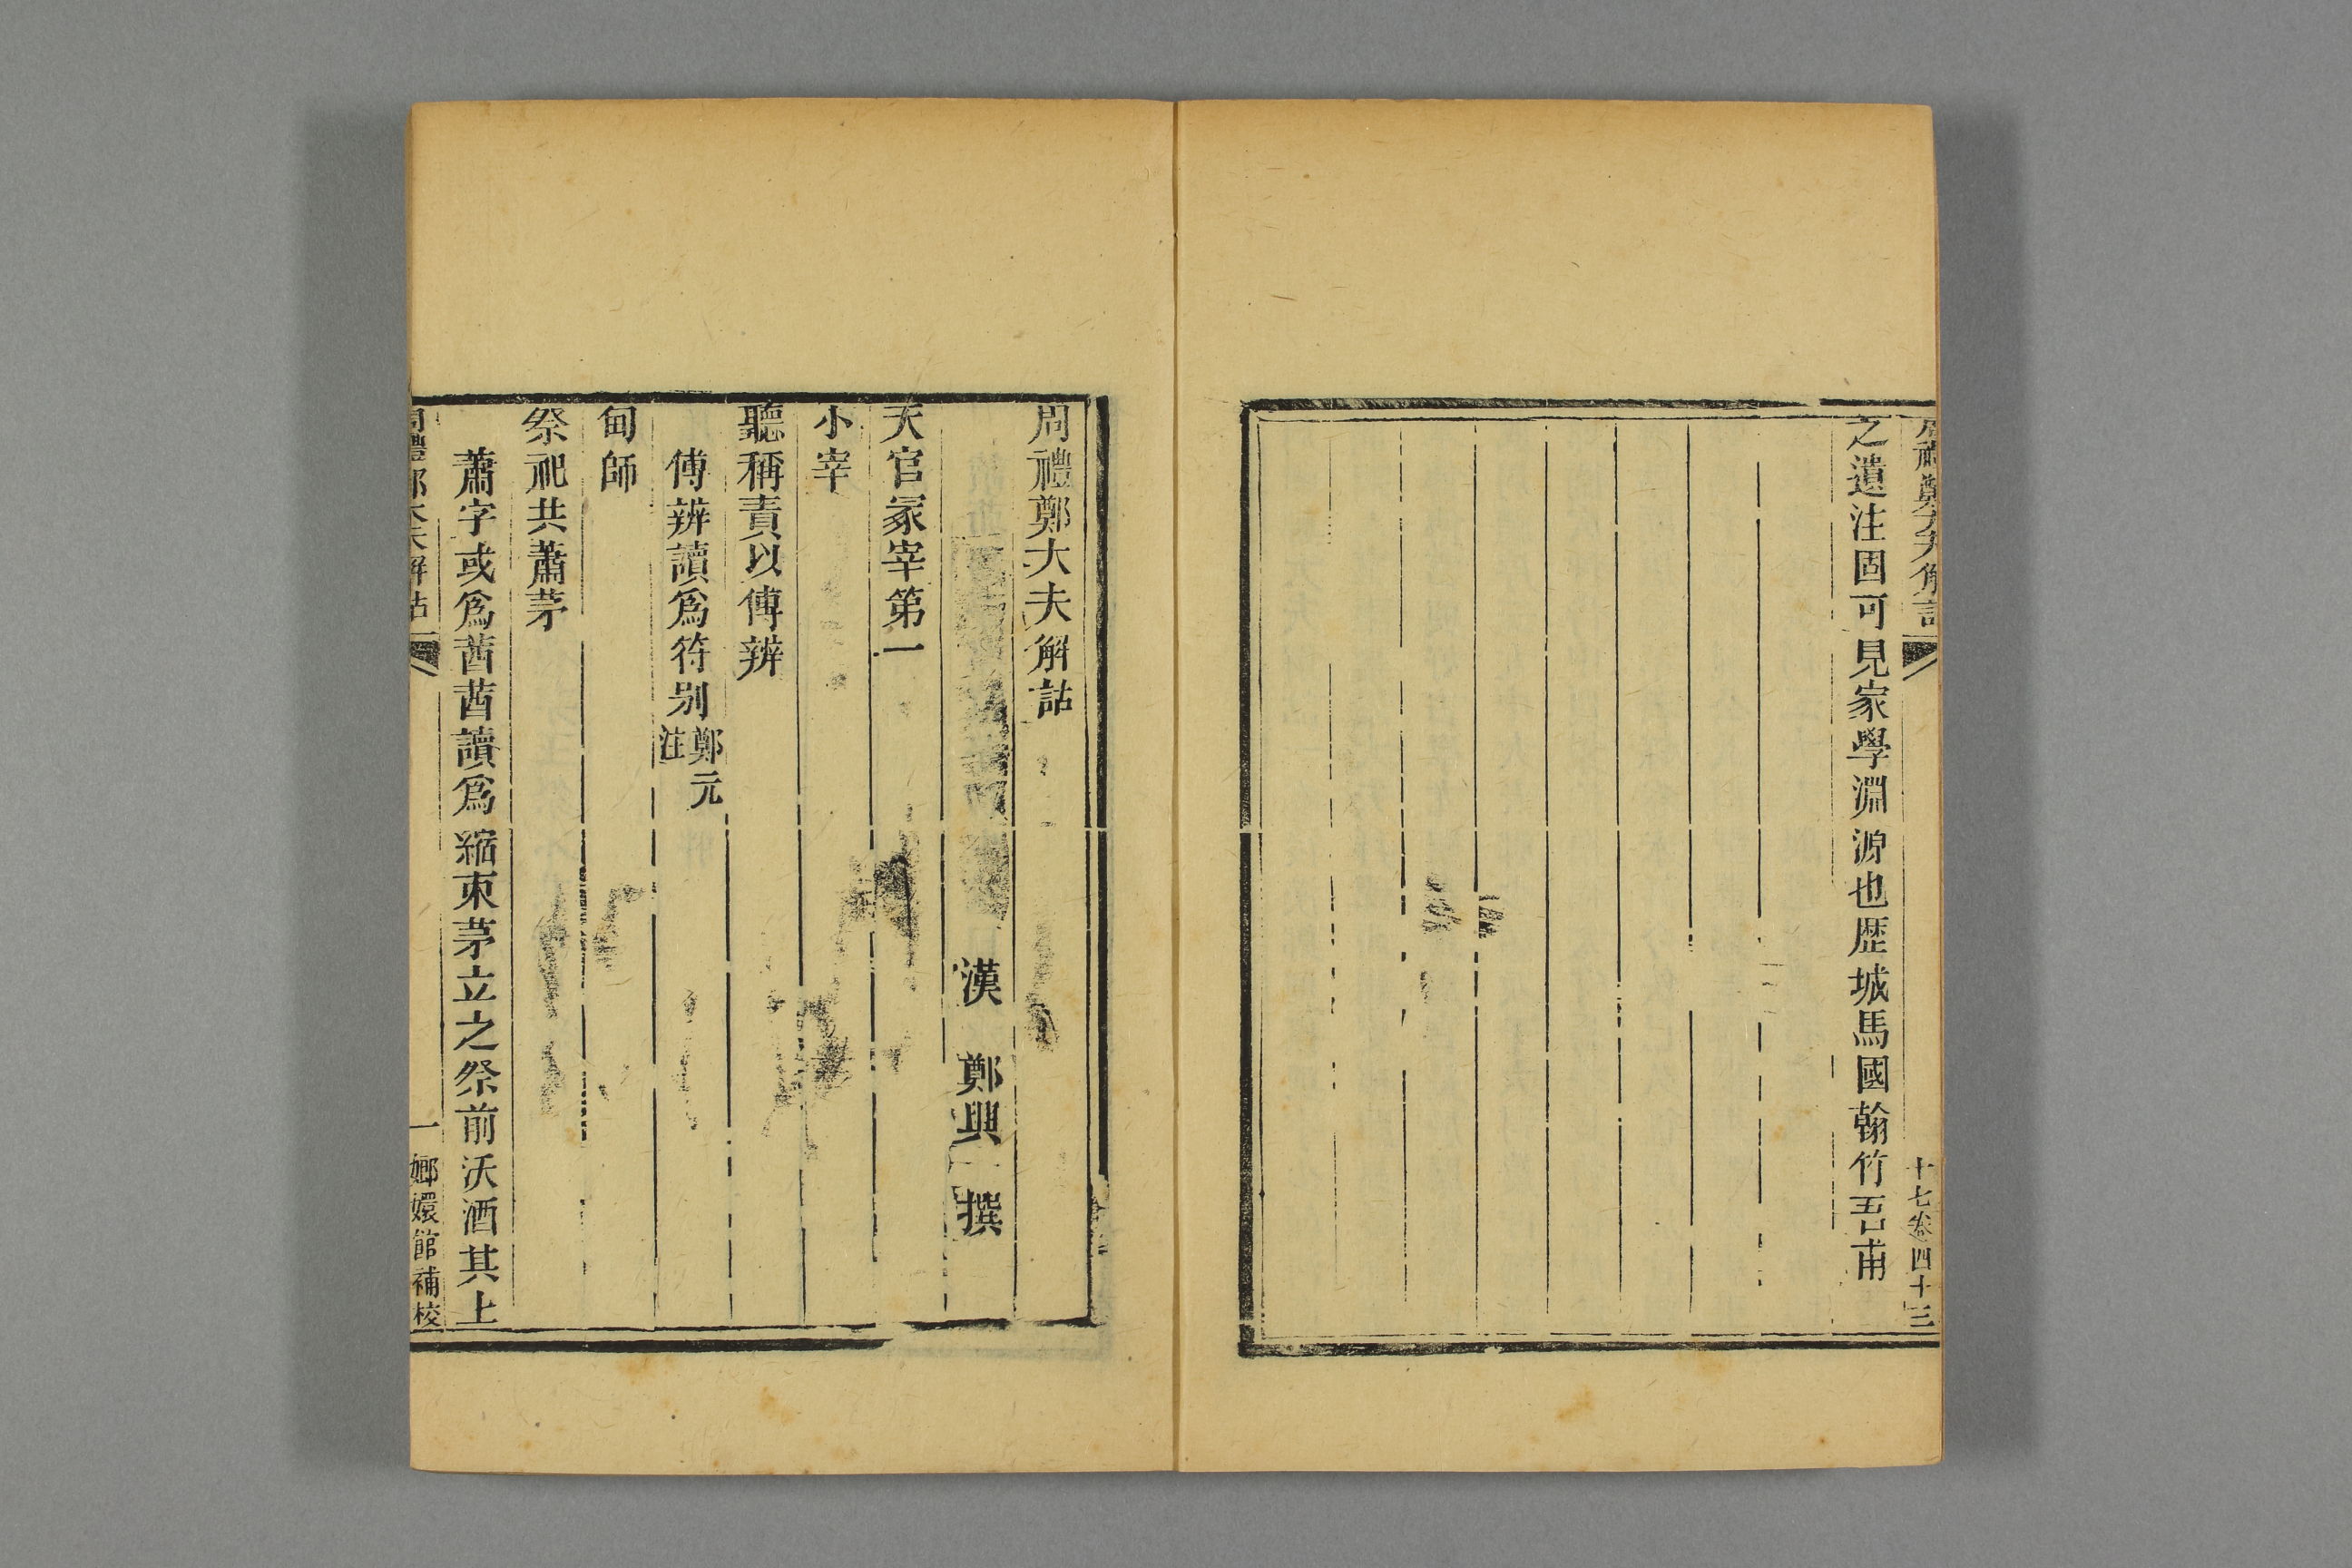 周禮鄭大夫解詁
十七卷四十三
之遺注固可見家學淵源也歷城馬國翰竹吾甫
周禮鄭大夫解詁
漢 鄭興 撰
天官冢宰第一
小宰
聽稱責以傅辨
傅辨讀爲符别鄭元注
甸師
祭祀共蕭茅
蕭字或爲莤莤讀爲縮束茅立之祭前沃酒其上
周禮鄭大夫解詁
一 嫏嬛館補校